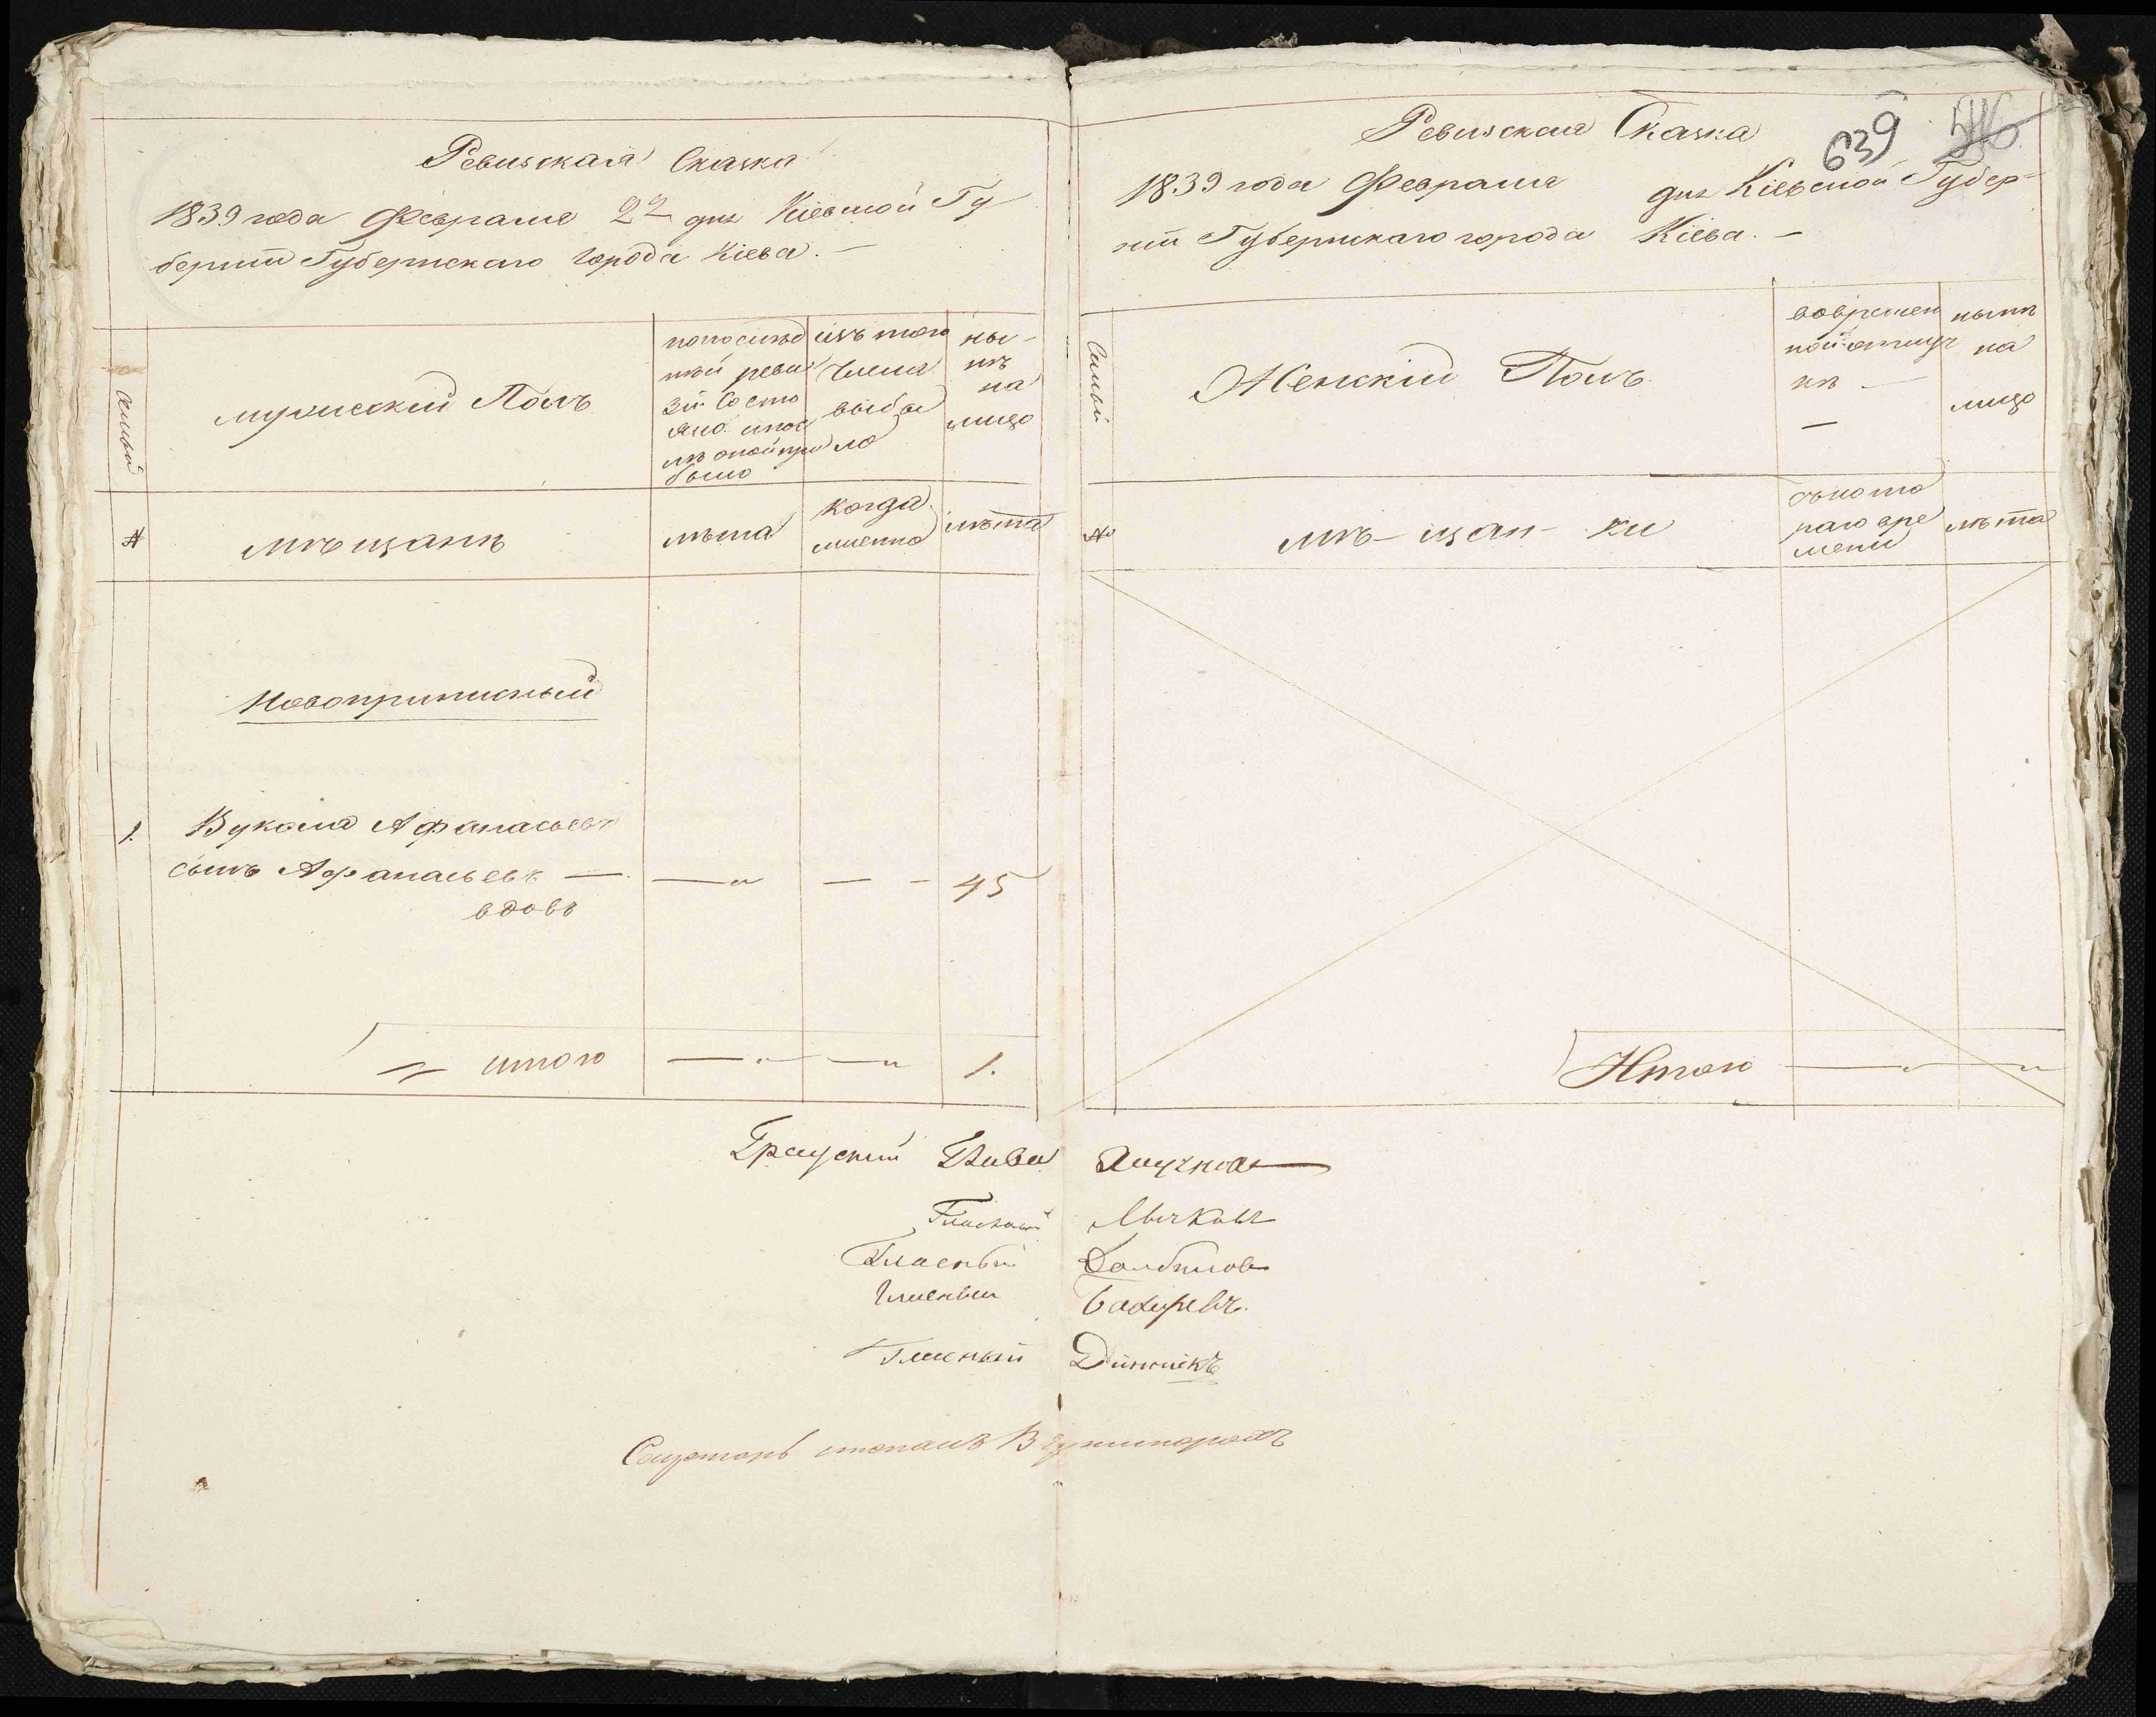 Ревизская Сказка
1839 года Февраля 22 дня Кіевской Гу
берніи Губернскаго города Кіева. —
Семьи
мужескій Полъ
по послѣд
ней реви
зіи Состо
яло и пос
лѣ оной при
было
изъ того
числа
выбы
ло
ны-
нѣ
на
лицо
№
мѣщанѣ
лѣта
когда
именно
лѣта
Новоприписный
1. Вукола Афанасьевъ
сынъ Афанасьевъ — — — 45
вдовъ
итого — — 1.
639
Ревизская Сказка
1839 года Февраля дня Кіевской Губер-
ніи Губернскаго города Кіева. —
Семьи
Женскій Полъ
во времен
ной отлуч
кѣ —
нынѣ
на
лицо
№
мѣ-щан-ки
съ кото
раго вре
мени
лѣта
Итого — —
Градскій Глава
Гласный Лычковъ
Гласный
Гласный Бахиревъ
Гласный Динникъ